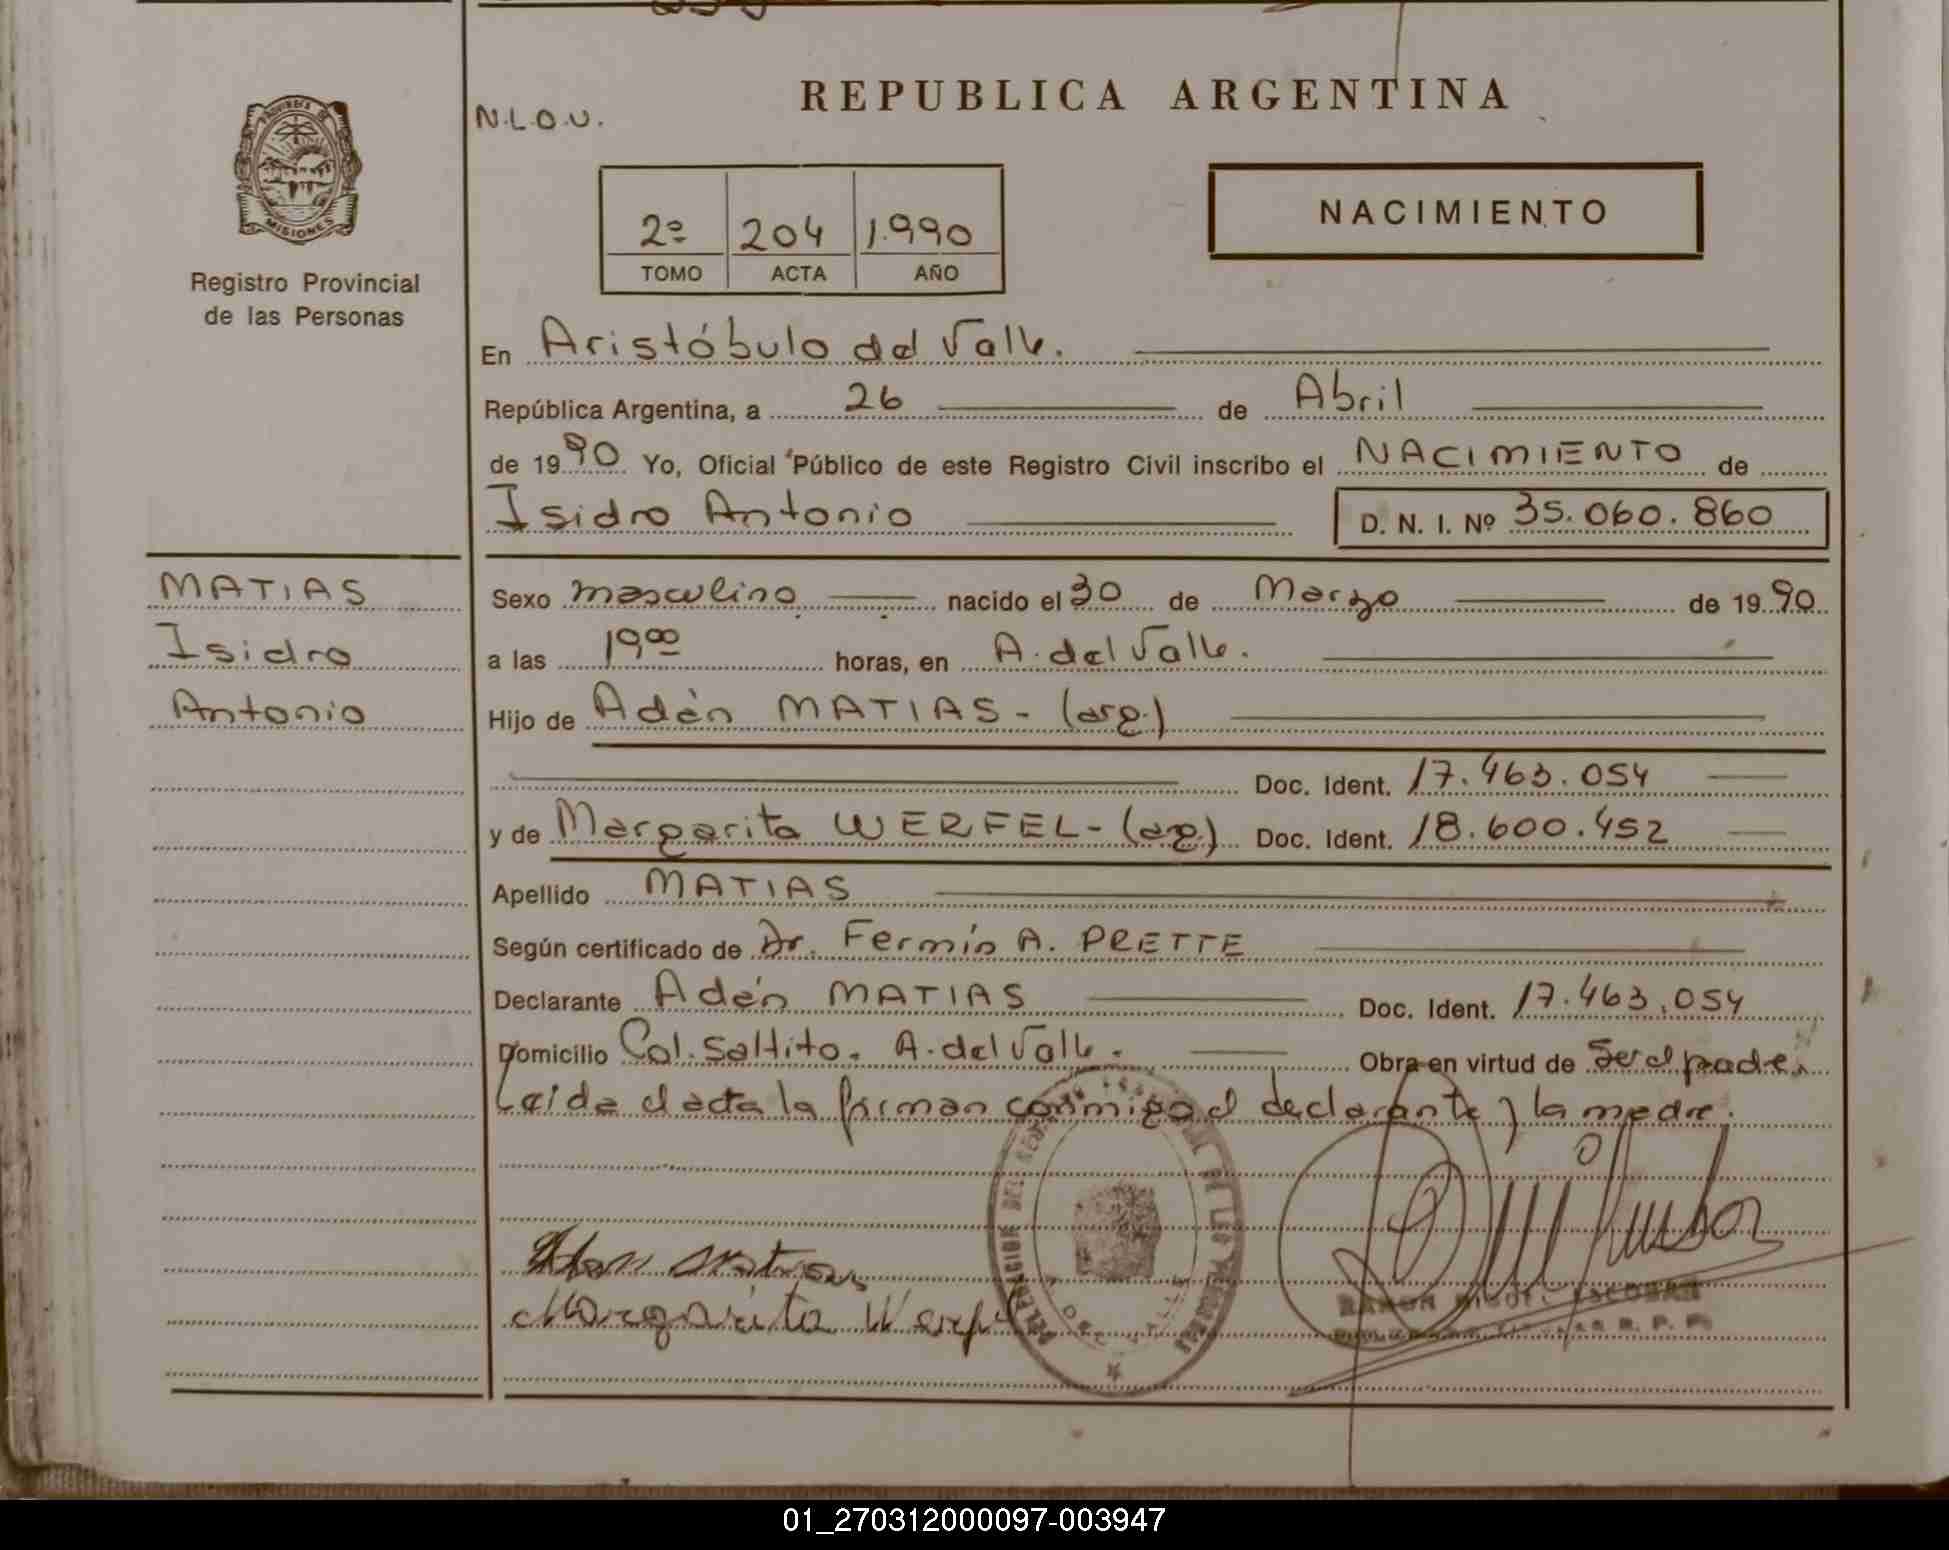 REPUBLICA ARGENTINA
N.L.O.U.
PROVINCIA DE MISIONES
Registro Provincial
de las Personas
2º 204 1.990
TOMO ACTA AÑO
NACIMIENTO
En Aristóbulo del Valle.
República Argentina, a 26 de Abril
de 1990 Yo, Oficial Público de este Registro Civil inscribo el NACIMIENTO de
Isidro Antonio D. N. I. Nº 35.060.860
MATIAS
Isidro
Antonio
Sexo masculino nacido el 30 de Marzo de 1990
a las 19⁰⁰ horas, en A. del Valle.
Hijo de Adén MATIAS - (arg.)
Doc. Ident. 17.463.054
y de Margarita WERFEL - (arg.) Doc. Ident. 18.600.452
Apellido MATIAS
Según certificado de Dr. Fermín A. PRETTE
Declarante Adén MATIAS Doc. Ident. 17.463.054
Domicilio Col. Saltito. A. del Valle. Obra en virtud de Ser el padre.
Leída el acta la firman conmigo el declarante y la madre.
Matias
Margarita Werfel
RAMON MIGUEL ESCOBAR
01_270312000097-003947